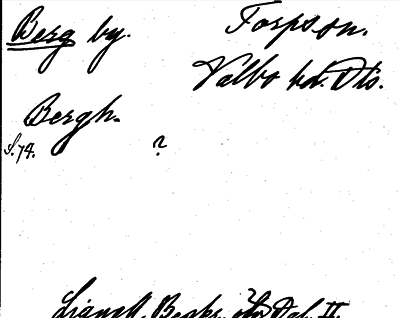 Berg by.
Torpson.
Valbo hd. Dls.
Bergh.
S. 74. ?
Lignell, Beskr. öfv. Dal. II.